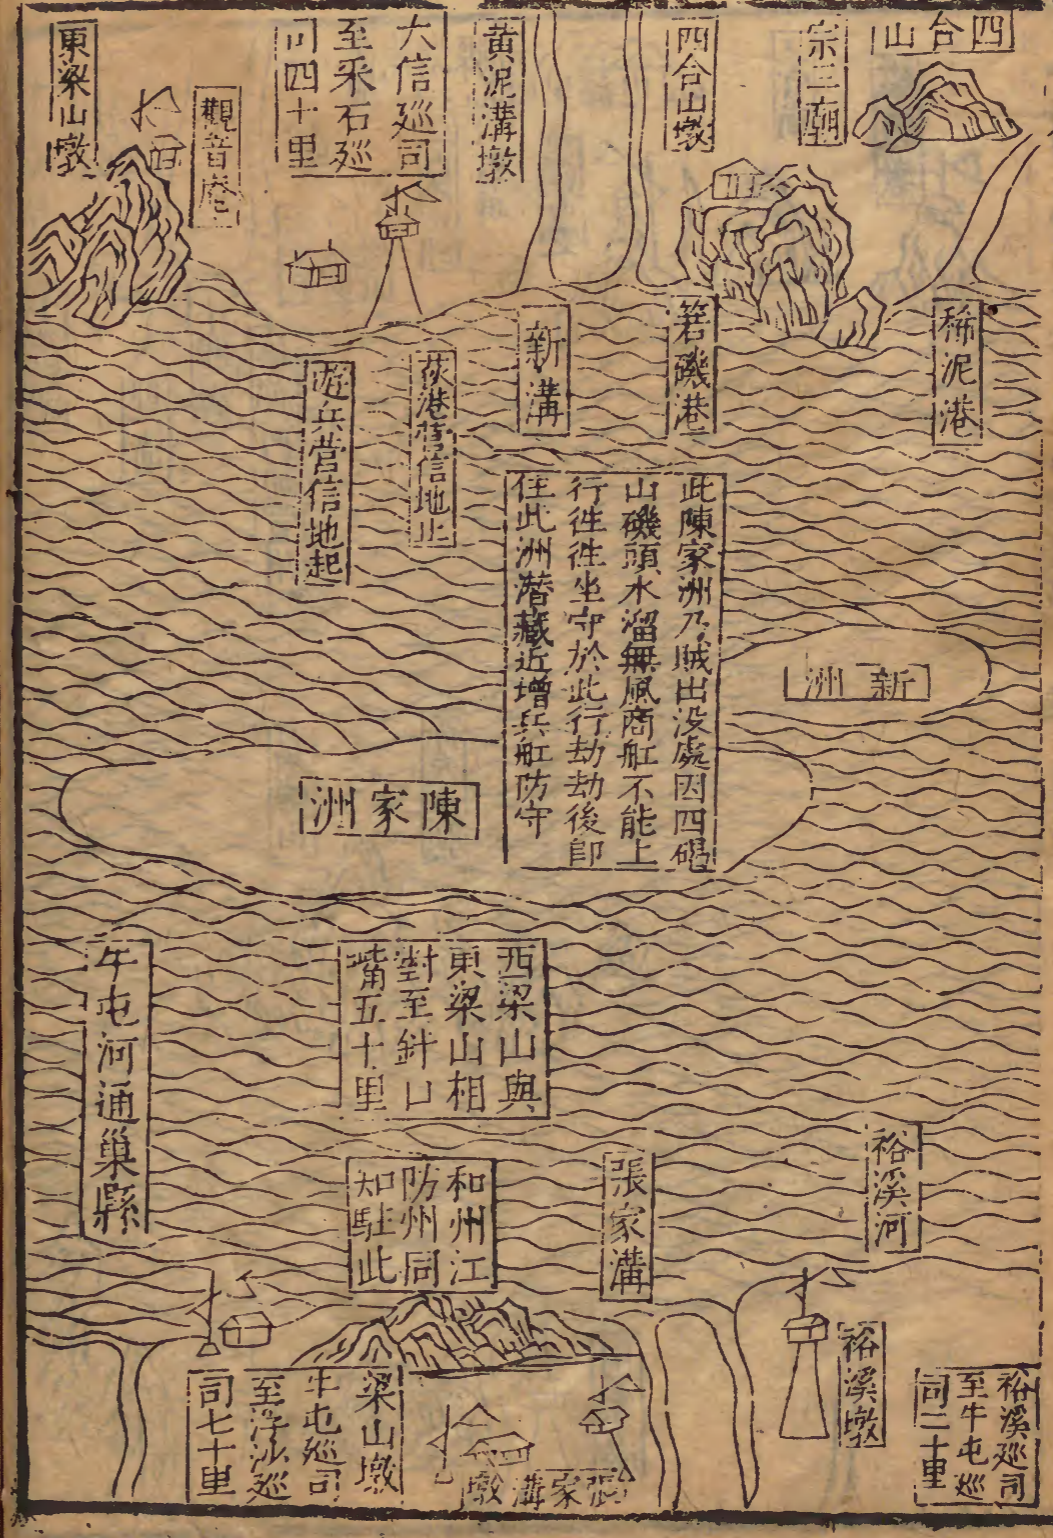 四合山
宗三廟
四合山墩
黄泥溝墩
大信巡司
至采石巡
司四十里
觀音庵
東梁山墩
稀泥港
磯港
新溝
荻港營信地止
遊兵營信地起
此陳家洲乃賊出没處因四磕
山磯頭水溜無風商舡不能上
行徃徃坐守於此行劫劫後即
徃此洲潜藏近增兵舡防守
新洲
陳家洲
西梁山與
東梁山相
對至針口
嘴五十里
牛屯河通巢縣
裕溪河
張家溝
和州江
防州同
知駐此
裕溪巡司
至牛屯巡
司二十里
裕溪墩
張家溝墩
梁山墩
牛屯巡司
至浮沙巡
司七十里